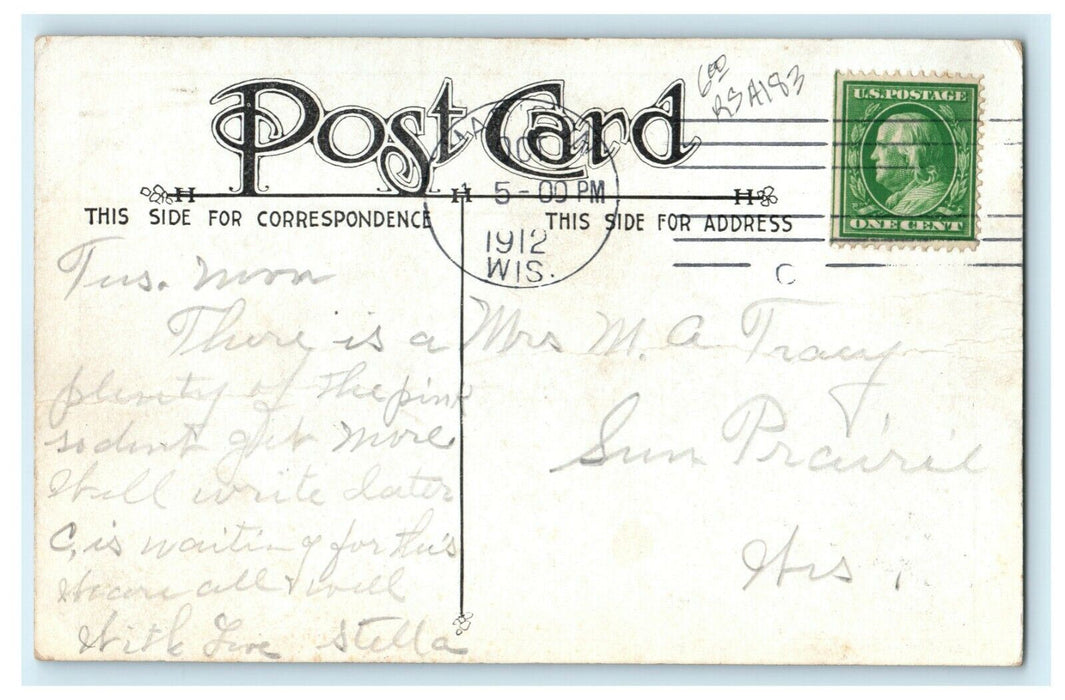 Post Card
6 00
RSA183
U.S. POSTAGE
ONE CENT
5-00 PM
1912
WIS.
C
THIS SIDE FOR CORRESPONDENCE
THIS SIDE FOR ADDRESS
Tus. Noon
There is a
plenty of the pink
so dont get more
Will write later
C, is waiting for this
We are all well
With Love Stella
Mrs M. A Tracy
Sun Prairie
Wis.